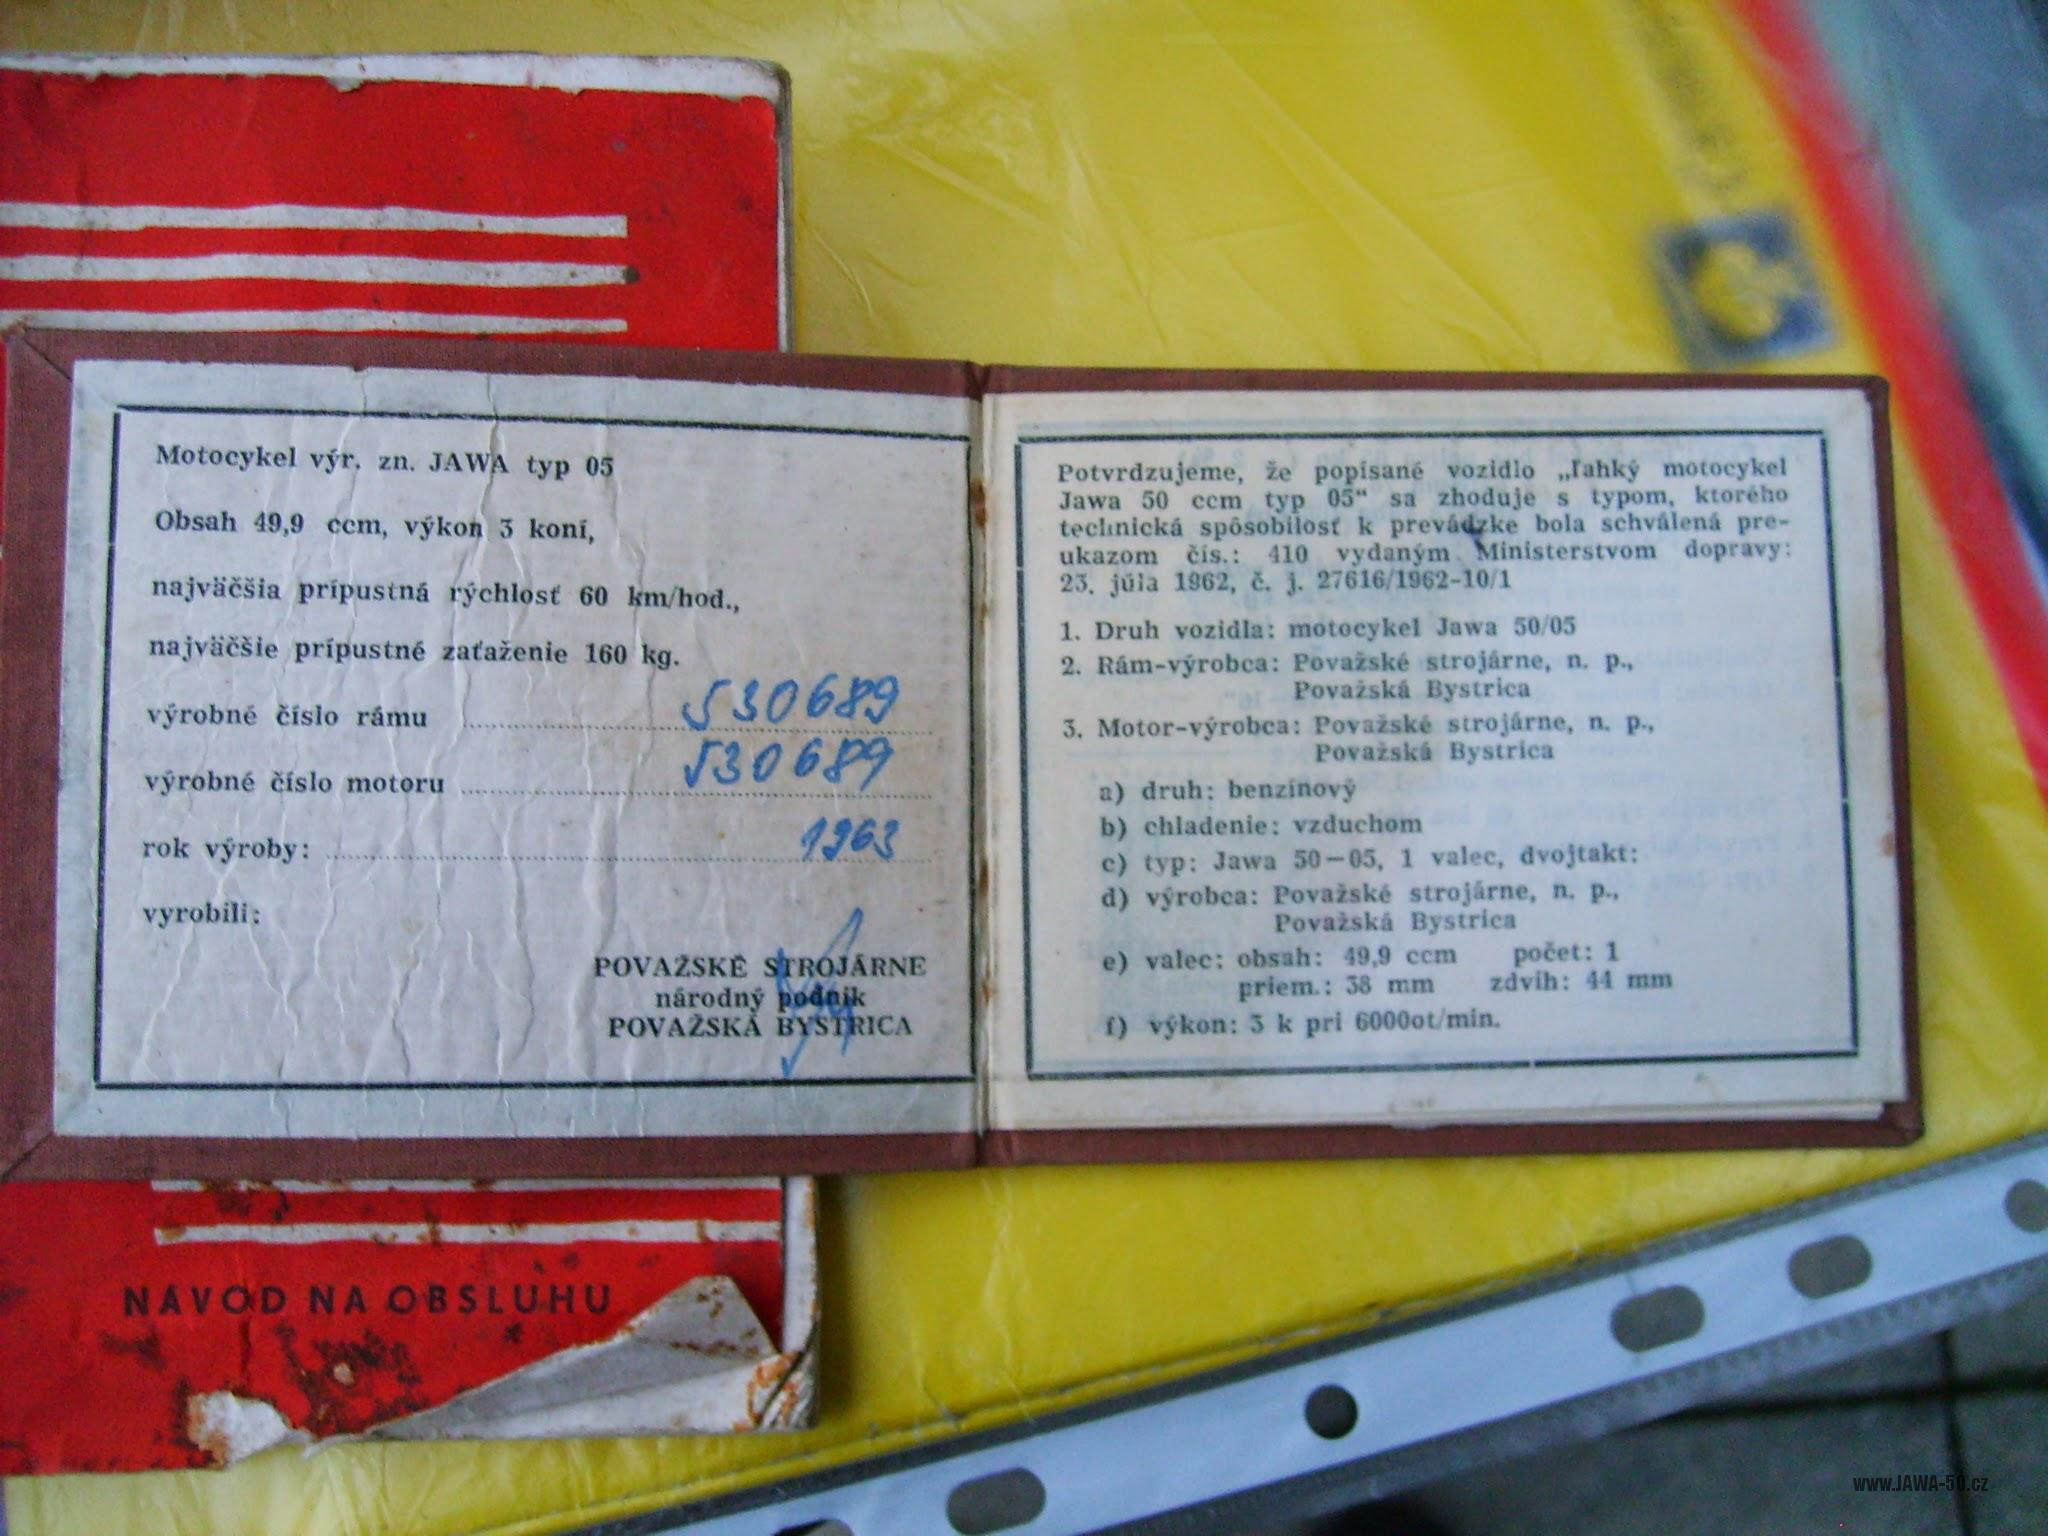 Motocykel výr. zn. JAWA typ 05
Obsah 49,9 ccm, výkon 3 koní,
najväčšia prípustná rýchlosť 60 km/hod.,
najväčšie prípustné zaťaženie 160 kg.
výrobné číslo rámu 530689
výrobné číslo motoru 530689
rok výroby: 1963
vyrobili:
POVAŽSKÉ STROJÁRNE
národný podnik
POVAŽSKÁ BYSTRICA
Potvrdzujeme, že popísané vozidlo „ľahký motocykel
Jawa 50 ccm typ 05“ sa zhoduje s typom, ktorého
technická spôsobilosť k prevádzke bola schválená pre-
ukazom čís.: 410 vydaným Ministerstvom dopravy:
23. júla 1962, č. j. 27616/1962-10/1
1. Druh vozidla: motocykel Jawa 50/05
2. Rám-výrobca: Považské strojárne, n. p.,
Považská Bystrica
3. Motor-výrobca: Považské strojárne, n. p.,
Považská Bystrica
a) druh: benzínový
b) chladenie: vzduchom
c) typ: Jawa 50—05, 1 valec, dvojtakt:
d) výrobca: Považské strojárne, n. p.,
Považská Bystrica
e) valec: obsah: 49,9 ccm počet: 1
priem.: 38 mm zdvih: 44 mm
f) výkon: 3 k pri 6000ot/min.
NÁVOD NA OBSLUHU
www.JAWA-50.cz